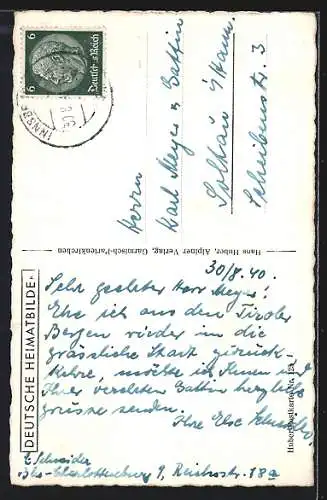 DEUTSCHE HEIMATBILDER
30/8.40.
Sehr geehrter Herr Meyer!
Ehe ich aus den Tiroler
Bergen wieder in die
grässliche Stadt zurück
kehre, möchte ich Ihnen und
Ihrer verehrten Gattin herzliche
grüsse senden.
Ihre Else Schneider
E. Schneider
Charlottenburg 9, Reichsstr. 78a
Hans Huber, Alpiner Verlag, Garmisch-Partenkirchen
Huber Postkarte Nr.
Herrn
Karl Meyer & Gattin
Soltau i/Hann.
Scheibenstr. 3
6 6
Deutsches Reich
INNSBR
30.8